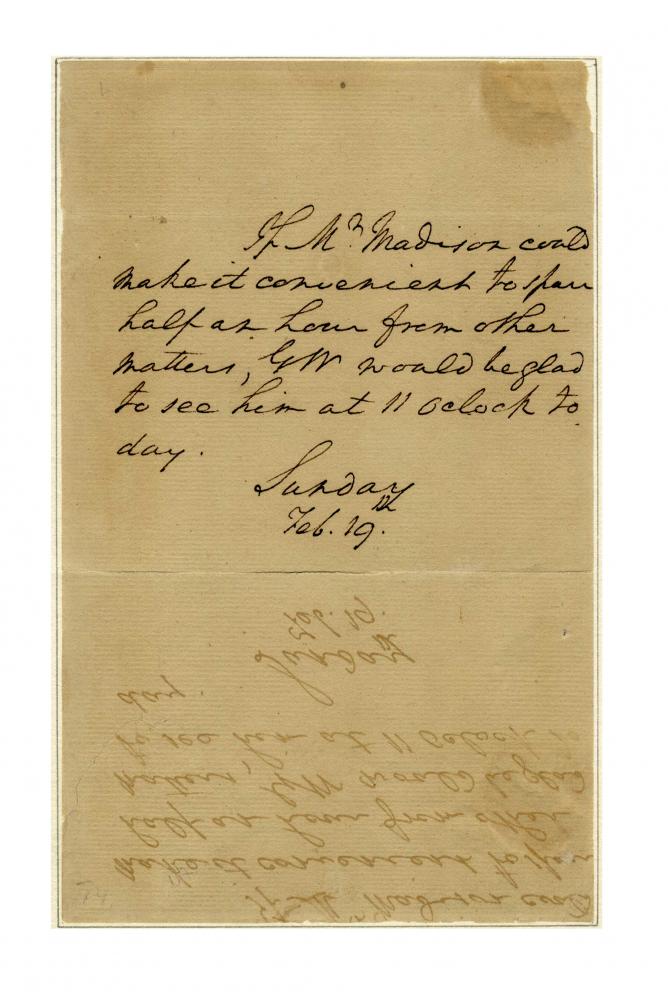 If Mr. Madison could
make it convenient to spare
half an hour from other
matters, GW would be glad
to see him at 11 Oclock to
day.
Sunday
Feb. 19th.